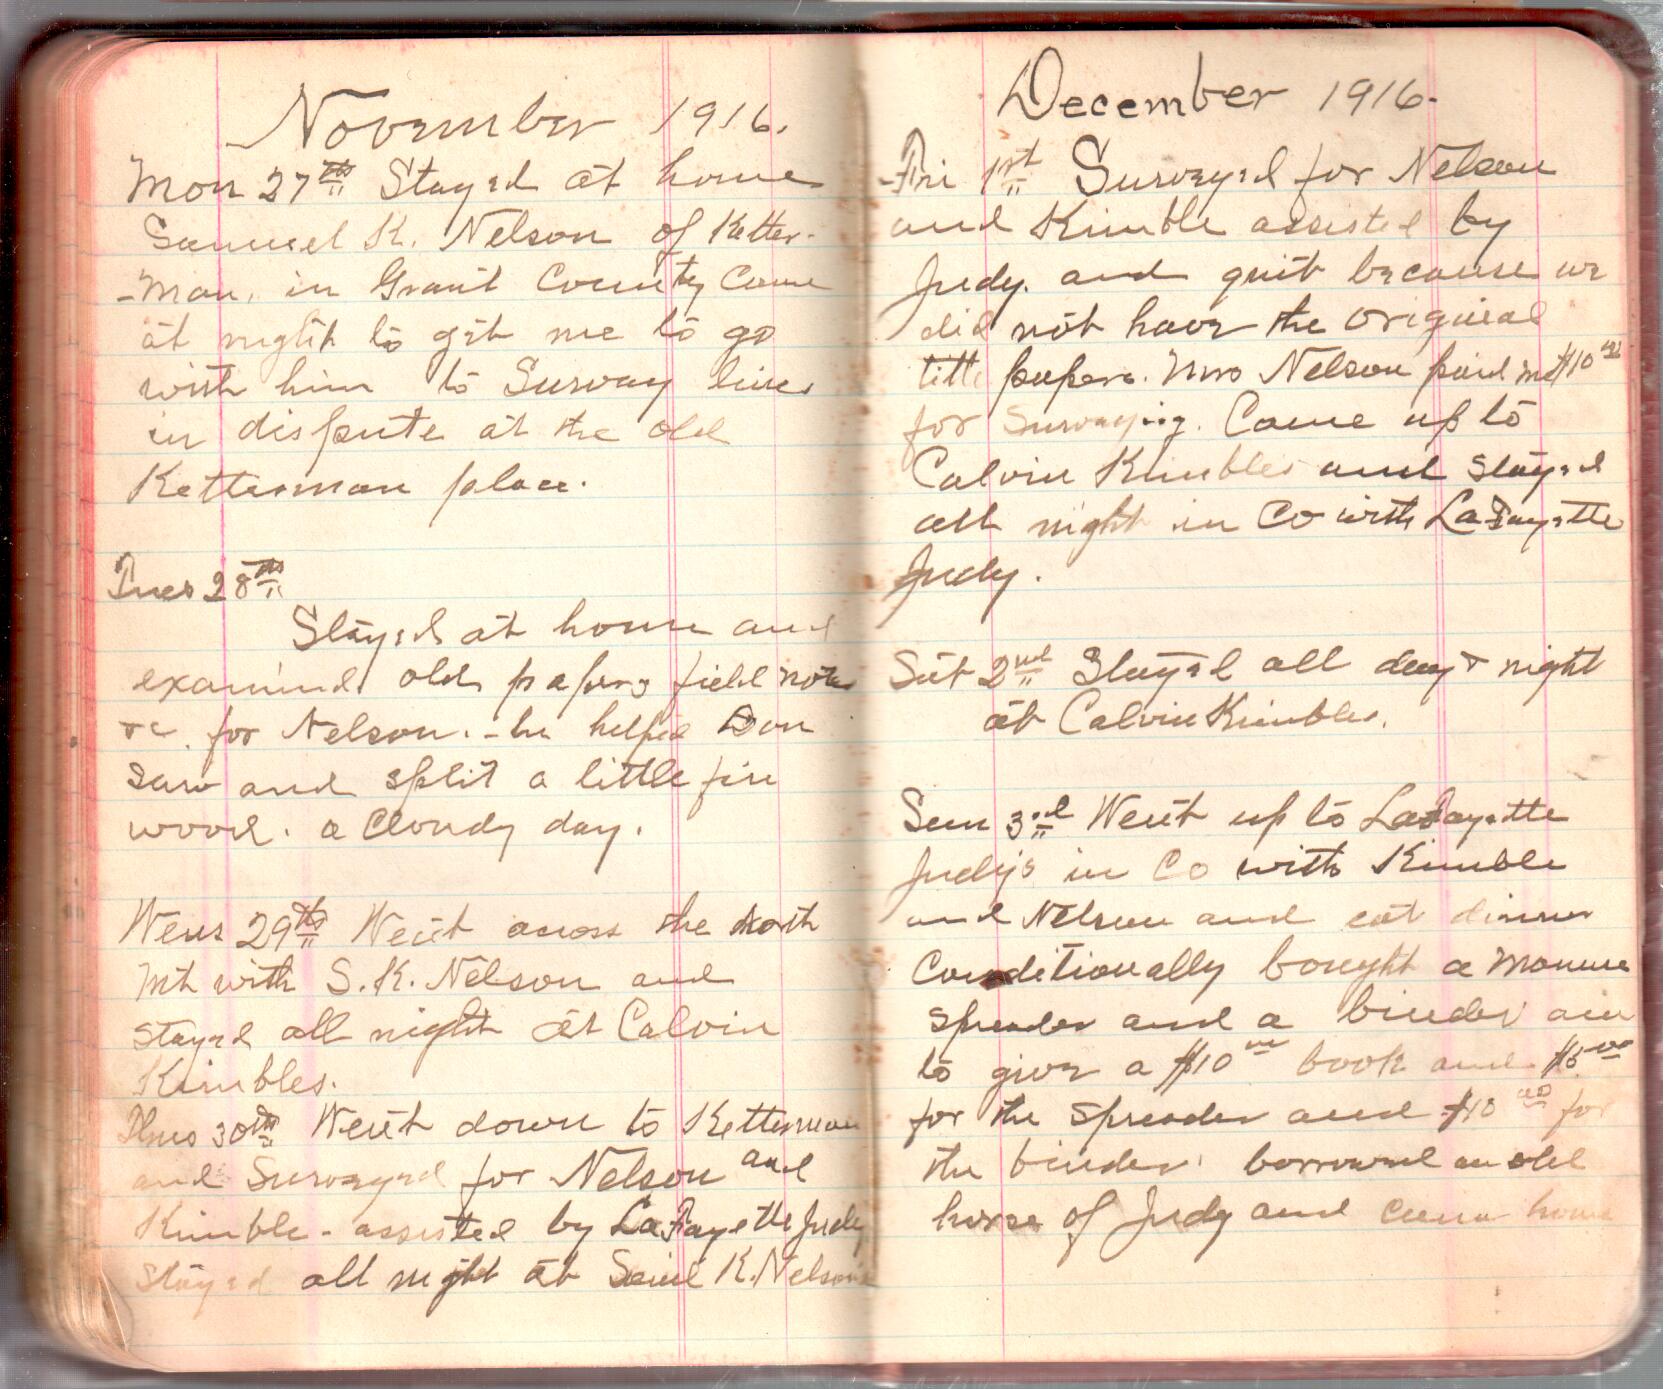 November 1916.
Mon 27th Stayed at home
Samuel K. Nelson of Ketter-
-man, in Grant County Came
at night to git me to go
with him to Survay lines
in dispute at the old
Ketterman place.
Tues 28th
Stayed at home and
examined old papers field notes
&c. for Nelson. - he helped Don
saw and split a little fire
wood. a Cloudy day.
Wens 29th Went across the North
Mt with S. K. Nelson and
stayed all night at Calvin
Kimbles.
Thus 30th Went down to Ketterman
and Surveyed for Nelson and
Kimble - assisted by LaFayette Judy
stayed all night at Saml K. Nelson's
December 1916.
Fri 1st Surveyed for Nelson
and Kimble assisted by
Judy. and quit because we
did not have the original
title papers. Mro Nelson paid me $10 00
for Surveying. Came up to
Calvin Kimbles and stayed
all night in Co with LaFayette
Judy.
Sat 2nd Stayed all day & night
at Calvin Kimbles.
Sun 3rd Went up to LaFayette
Judy's in Co with Kimble
and Nelson and eat dinner
Conditionally bought a Manure
spreader and a binder am
to give a $10 00 book and $5 00
for the spreader and $10 00 for
the binder. borrowed an old
horse of Judy and came home